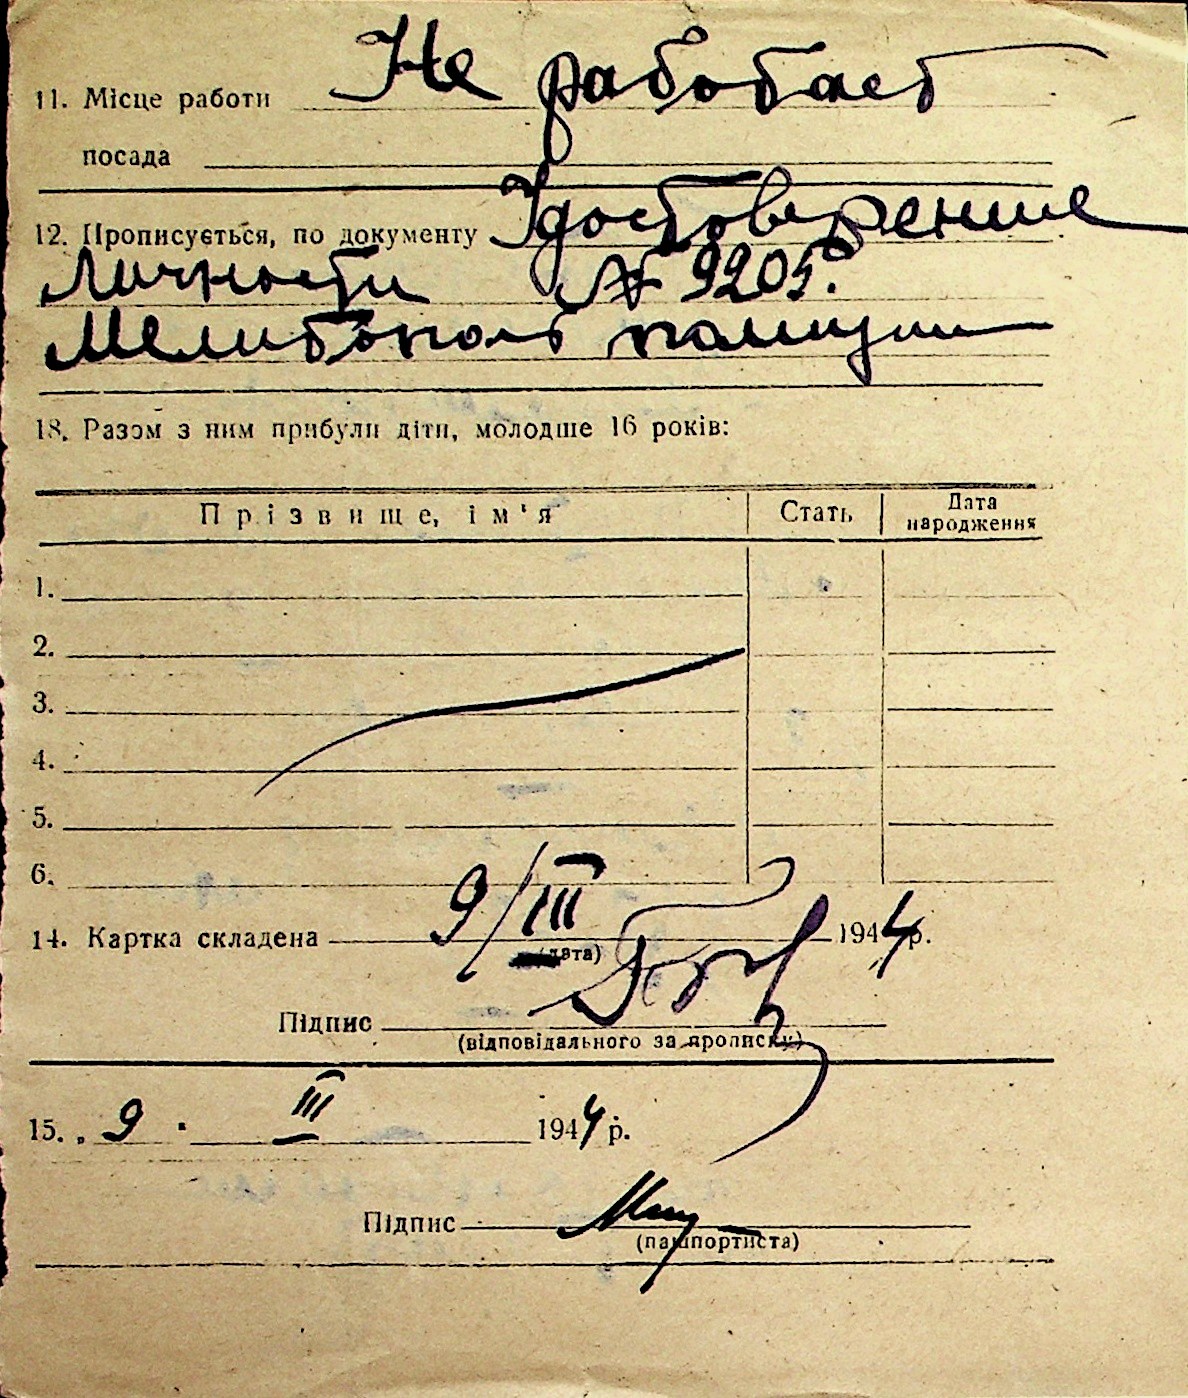 11. Місце работи Не работает
посада
12. Прописується, по документу Удостоверение
Личности № 9205.
Мелитополь полиции
13. Разом з ним прибули діти, молодше 16 років:
Прізвище, ім'я Стать Дата народження
1.
2.
3.
4.
5.
6.
14. Картка складена 9/III 1944 р.
(дата)
Підпис
(відповідального за прописку)
15. „ 9 " III 1944 р.
Підпис
(пашпортиста)